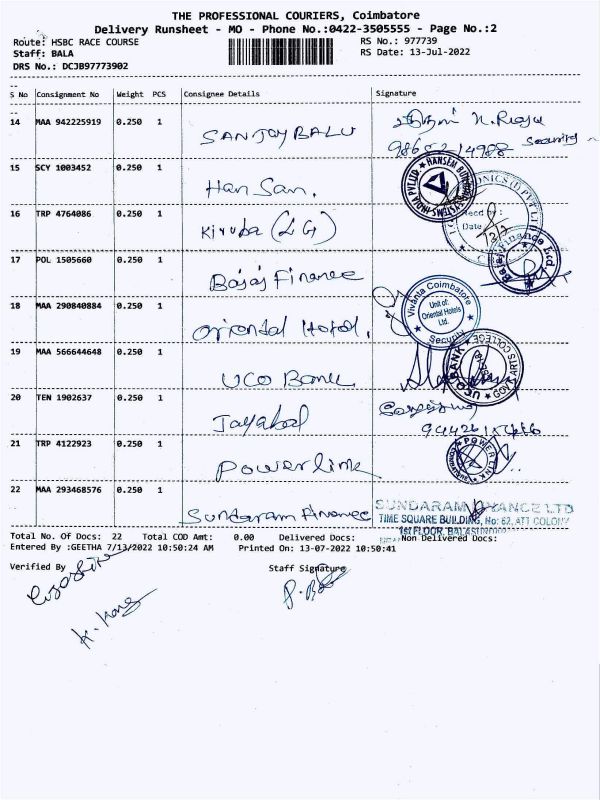 THE PROFESSIONAL COURIERS, Coimbatore
Delivery Runsheet - MO - Phone No.:0422-3505555 - Page No.:2
Route: HSBC RACE COURSE
RS No.: 977739
Staff: BALA
RS Date: 13-Jul-2022
DRS No.: DCJB97773902
S No Consignment No Weight PCS Consignee Details Signature
14 MAA 942225919 0.250 1 SANJOY BALU
Security
15 SCY 1003452 0.250 1 Han San.
HANSEM BUILDING SYSTEMS INDIA PVT LTD.
16 TRP 4764086 0.250 1 Kiruba (LG)
Recd by :
Date
17 POL 1505660 0.250 1 Bajaj Finance
Bajaj Finance Ltd
18 MAA 290840884 0.250 1 Oriental Hotel.
Vivanta Coimbatore
Unit of:
Oriental Hotels
Ltd.
Security
19 MAA 566644648 0.250 1 UCO Bank
UCO BANK GOVT ARTS COLLEGE
20 TEN 1902637 0.250 1
21 TRP 4122923 0.250 1 Powerlink
POWER LINK
22 MAA 293468576 0.250 1 Sundaram Finance
SUNDARAM FINANCE LTD
TIME SQUARE BUILDING, No: 62, ATT COLONY
1st FLOOR,
Total No. Of Docs: 22 Total COD Amt: 0.00 Delivered Docs: Non Delivered Docs:
Entered By :GEETHA 7/13/2022 10:50:24 AM Printed On: 13-07-2022 10:50:41
Verified By Staff Signature